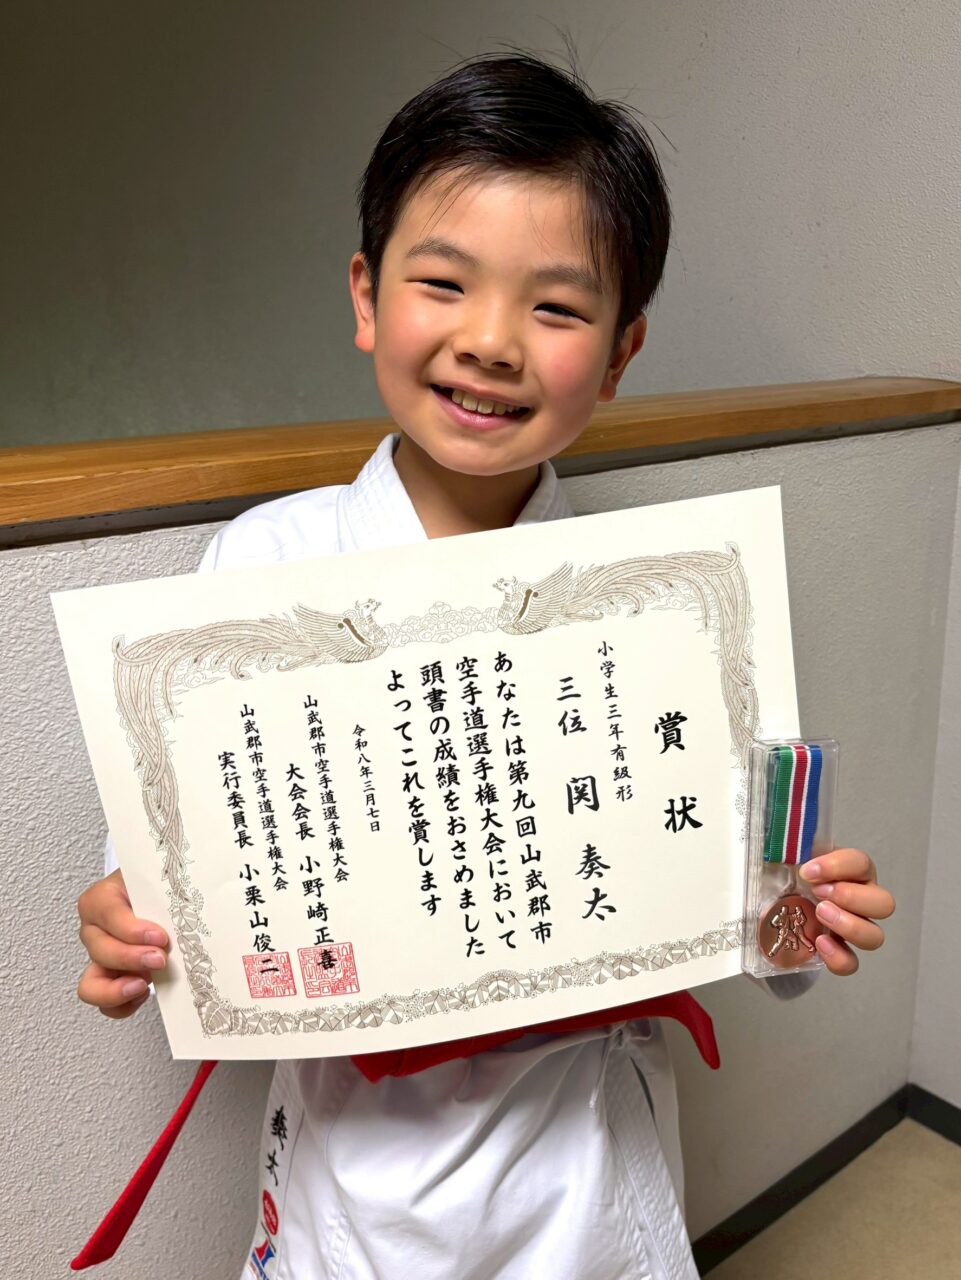 賞状
小学生三年有級形
三位 関奏太
あなたは第九回山武郡市
空手道選手権大会において
頭書の成績をおさめました
よってこれを賞します
令和八年三月七日
山武郡市空手道選手権大会
大会会長 小野崎正喜
山武郡市空手道選手権大会
実行委員長 小栗山俊二